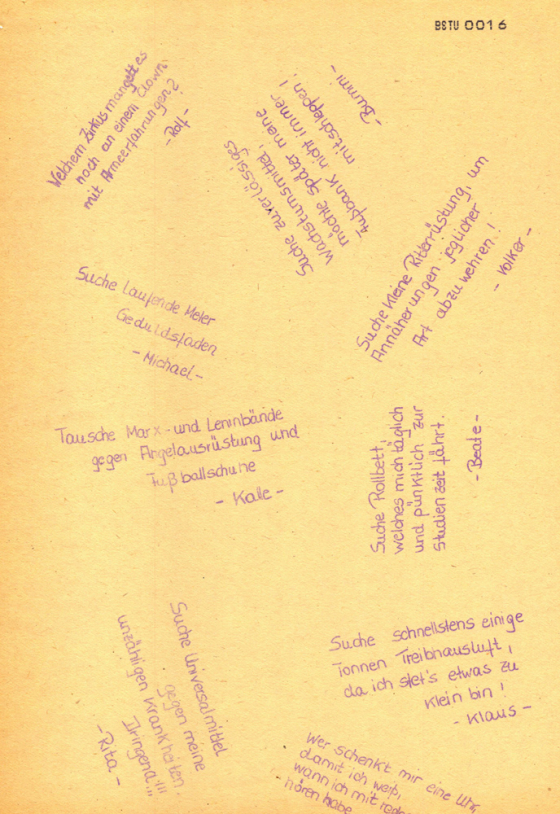 BSTU 0016
Welchem Zirkus mangelt es
noch an einem Clown
mit Armeeerfahrungen?
-Ralf-
Suche zuverlässiges
Wachstumsmittel,
möchte später meine
Fußbank nicht immer
mitschleppen!
-Bummi-
Suche kleine Ritterrüstung, um
Annäherungen jeglicher
Art abzuwehren!
- Volker -
Suche laufende Meter
Geduldsfaden
- Michael -
Tausche Marx- und Leninbände
gegen Angelausrüstung und
Fußballschuhe
- Kalle -
Suche Rollbett,
welches mich täglich
und pünktlich zur
Studienzeit fährt.
- Beate -
Suche Universalmittel
gegen meine
unzähligen Krankheiten.
Dringend!!!
- Rita -
Suche schnellstens einige
Tonnen Treibhausluft,
da ich stet's etwas zu
klein bin!
- Klaus -
Wer schenkt mir eine Uhr,
damit ich weiß,
wann ich mit reden
hören habe